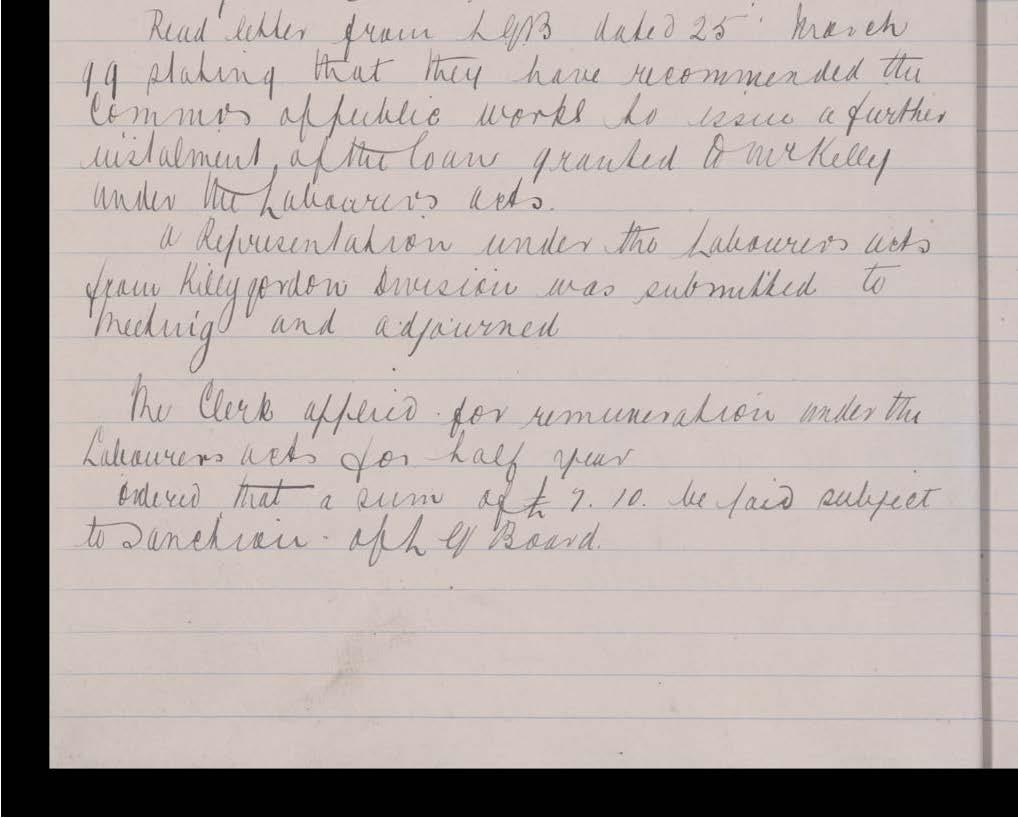 Read letter from LGB dated 25 March
99 stating that they have recommended the
Commrs of public works to issue a further
instalment of the loan granted to Mr Kelly
under the Labourers acts.
a Representation under the Labourers acts
from Killygordon Division was submitted to
meeting and adjourned
The Clerk applied for remuneration under the
Labourers acts for half year
Ordered that a sum of £ 7. 10. be paid subject
to Sanction of L G Board.